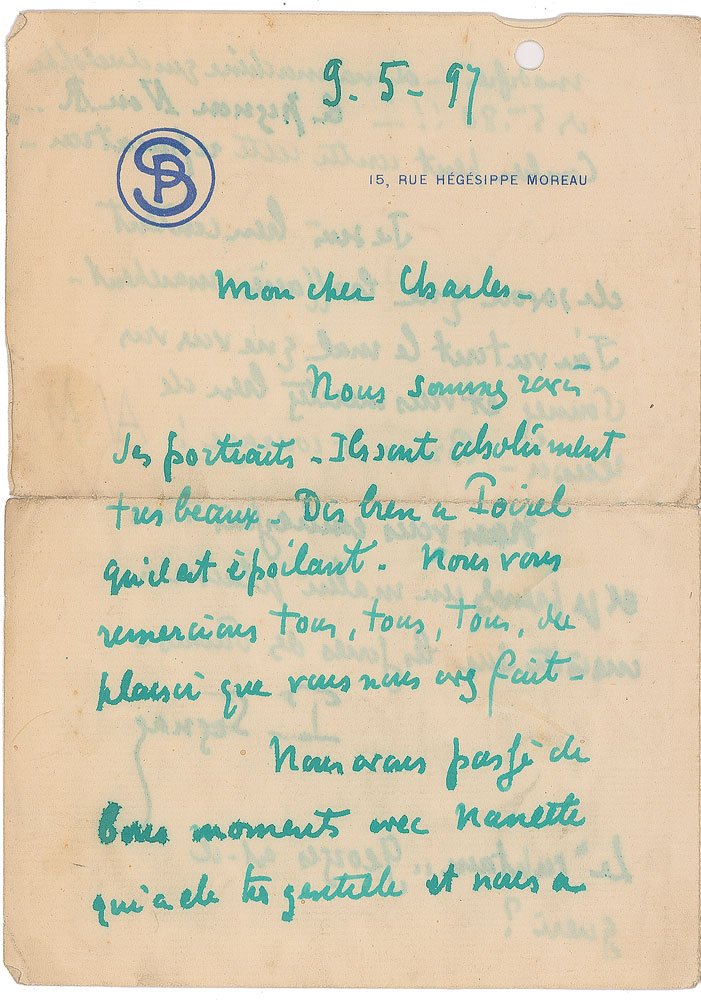 9-5-97
SP
15, RUE HÉGÉSIPPE MOREAU
Mon cher Charles -
Nous sommes ravis
des portraits - Ils sont absolument
tres beaux - Dis bien a
qu'il est époilant - Nous vous
remercions tous, tous, tous, du
plaisir que vous nous avez fait -
Nous avons passé de
bons moments avec Nanette
qui a ete tres gentille et nous a